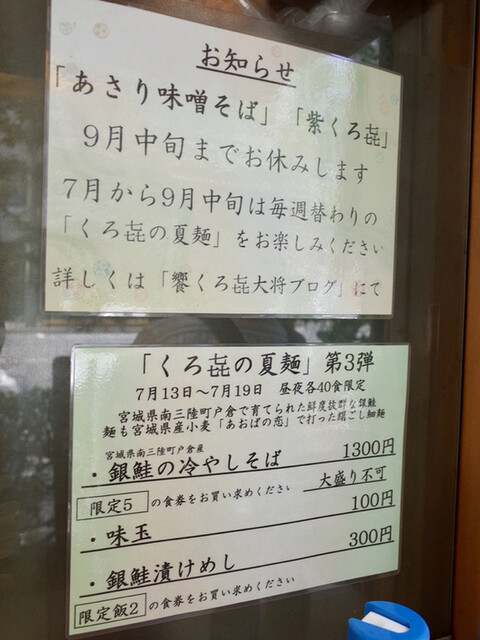 お知らせ
「あさり味噌そば」「紫くろ㐂」
9月中旬までお休みします
7月から9月中旬は毎週替わりの
「くろ㐂の夏麺」をお楽しみください
詳しくは「饗くろ㐂大将ブログ」にて
「くろ㐂の夏麺」第3弾
7月13日～7月19日 昼夜各40食限定
宮城県南三陸町戸倉で育てられた鮮度抜群な銀鮭
麺も宮城県産小麦「あおばの恋」で打った絹ごし細麺
宮城県南三陸町戸倉産
・銀鮭の冷やしそば 1300円
限定5 の食券をお買い求めください 大盛り不可
・味玉 100円
・銀鮭漬けめし 300円
限定飯2 の食券をお買い求めください